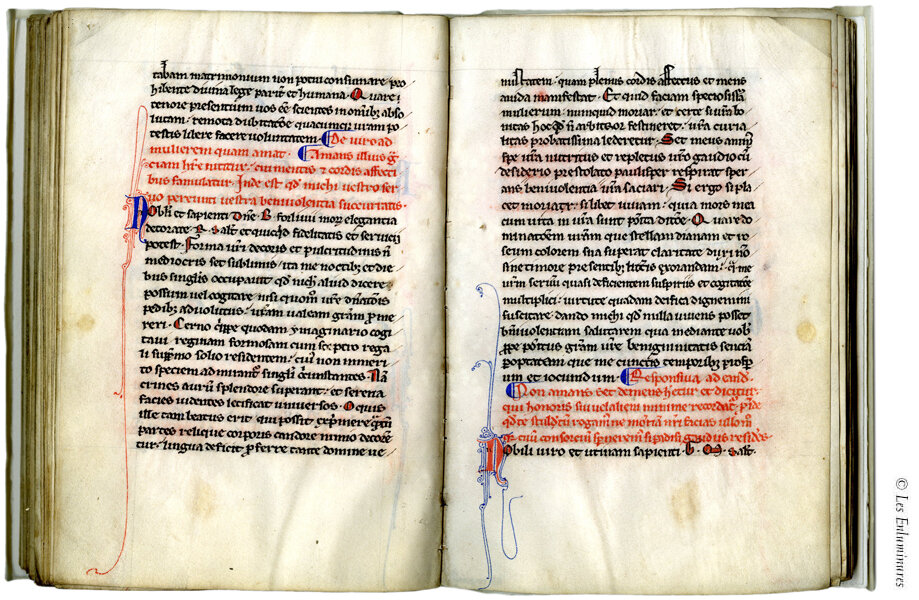 tabam matrimonium non potui consumare. pro
hibente divina lege pariter et humana. Quare
tenore presentium vos esse scientes in omnibus abso
lutam. remota dubitatione quacumque viram po
testis libere facere voluntatem. De viro ad
mulierem quam amat. Amans illius
ciam habere nititur. cui mentis et cordis affecti
bus famulatur. Inde est quod michi vestro ser
vo pereunti vestra benivolentia succurratis.
Nobili et sapienti domine B. forlivii morum elegantia
decorate. R. salutem et quicquid fidelitatis et servicii
potest. Forma vestri decoris et pulcritudinis non
mediocris set sublimis. ita me noctibus et die
bus singulis occupavit. quod nichil aliud dicere
possum vel cogitare. nisi
pedibus advolutus. vestram valeam gratiam prome
reri. Cerno quippe quodam ymaginario cogi
tavi. reginam formosam cum sceptro rega
li suppremo solio residentem. cuius non inmeri
to speciem admirantur singuli circumstantes. Nam
crines auri splendore superant. et serena
facies videntes letificat universos. O quis
ille tam beatus erit. qui possit exprimere quantum
partes relique corporis candore nimio decoren
tur. lingua deficit proferre tante domine ve
nustatem. quam plenus cordis affectus et mens
avida manifestat. Et quid faciam speciosissima
mulierum. numquid moriar. et certe summa bo
nitas hoc quod non arbitror festineret. vestra curia
litas probatissima lederetur. Set meus animus
spe vestra nutritus et repletus vestro gaudio cum
desiderio prestolato paulisper respirat sper
ans benivolentia vestra saciari. Si ergo si pla
cet moriatur. si libet vivam. quia mors mea
cum vita in vestra sunt posita ditione. Quare do
minationem vestram quam stellam dianam et ro
seum colorem sua superat claritate duxi non
sine timore presentibus litteris exorandam. quod me
vestrum servum quasi deficientem suspiriis et cogitatione
multiplici. virtute quadam deifica dignemini
suscitare. dando michi quod milla vivens posset
benivolentiam salutarem qua mediante vobis
propter potentius gratiam vestre benignitatis sencia
peroptatam que me cunctis temporibus prosper
um et iocundum. Responsiva ad eandem.
Non amans set demens habetur et dicitur.
qui honoris sui velamen minime recordatur. proinde
quod te stultum rogamine moriam non facias illorum
qui tuum consorcium spernerem si paradisi gaudiis resides
Nobili viro et utinam sapienti. b. M. salutem.